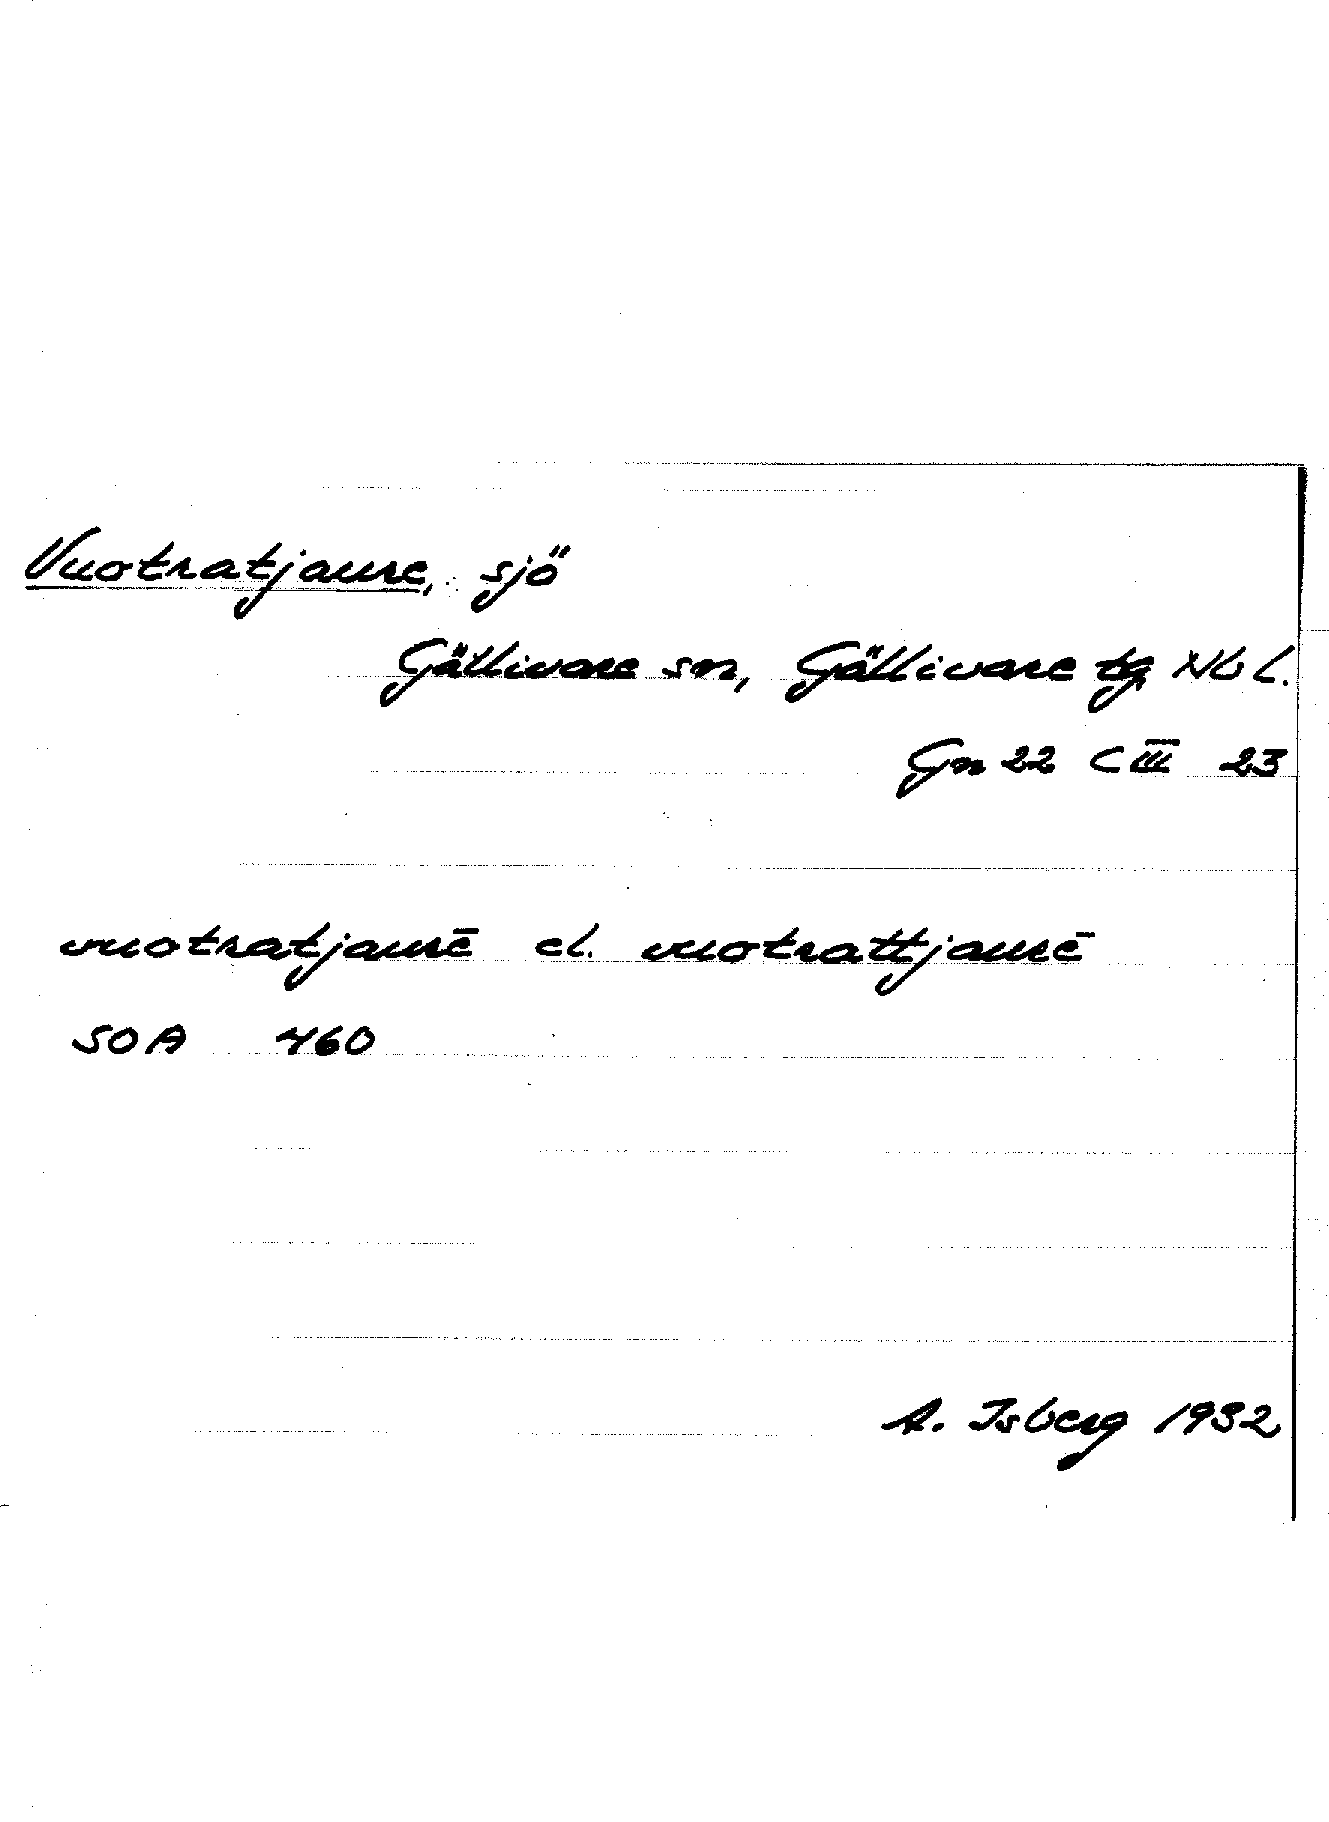 Vuotratjaure, sjö
Gällivare sn, Gällivare tg Nb l.
Gn 22 C III 23
vuotratjaurē el. vuotrattjaurē
SOA 460
A. Isberg 1932